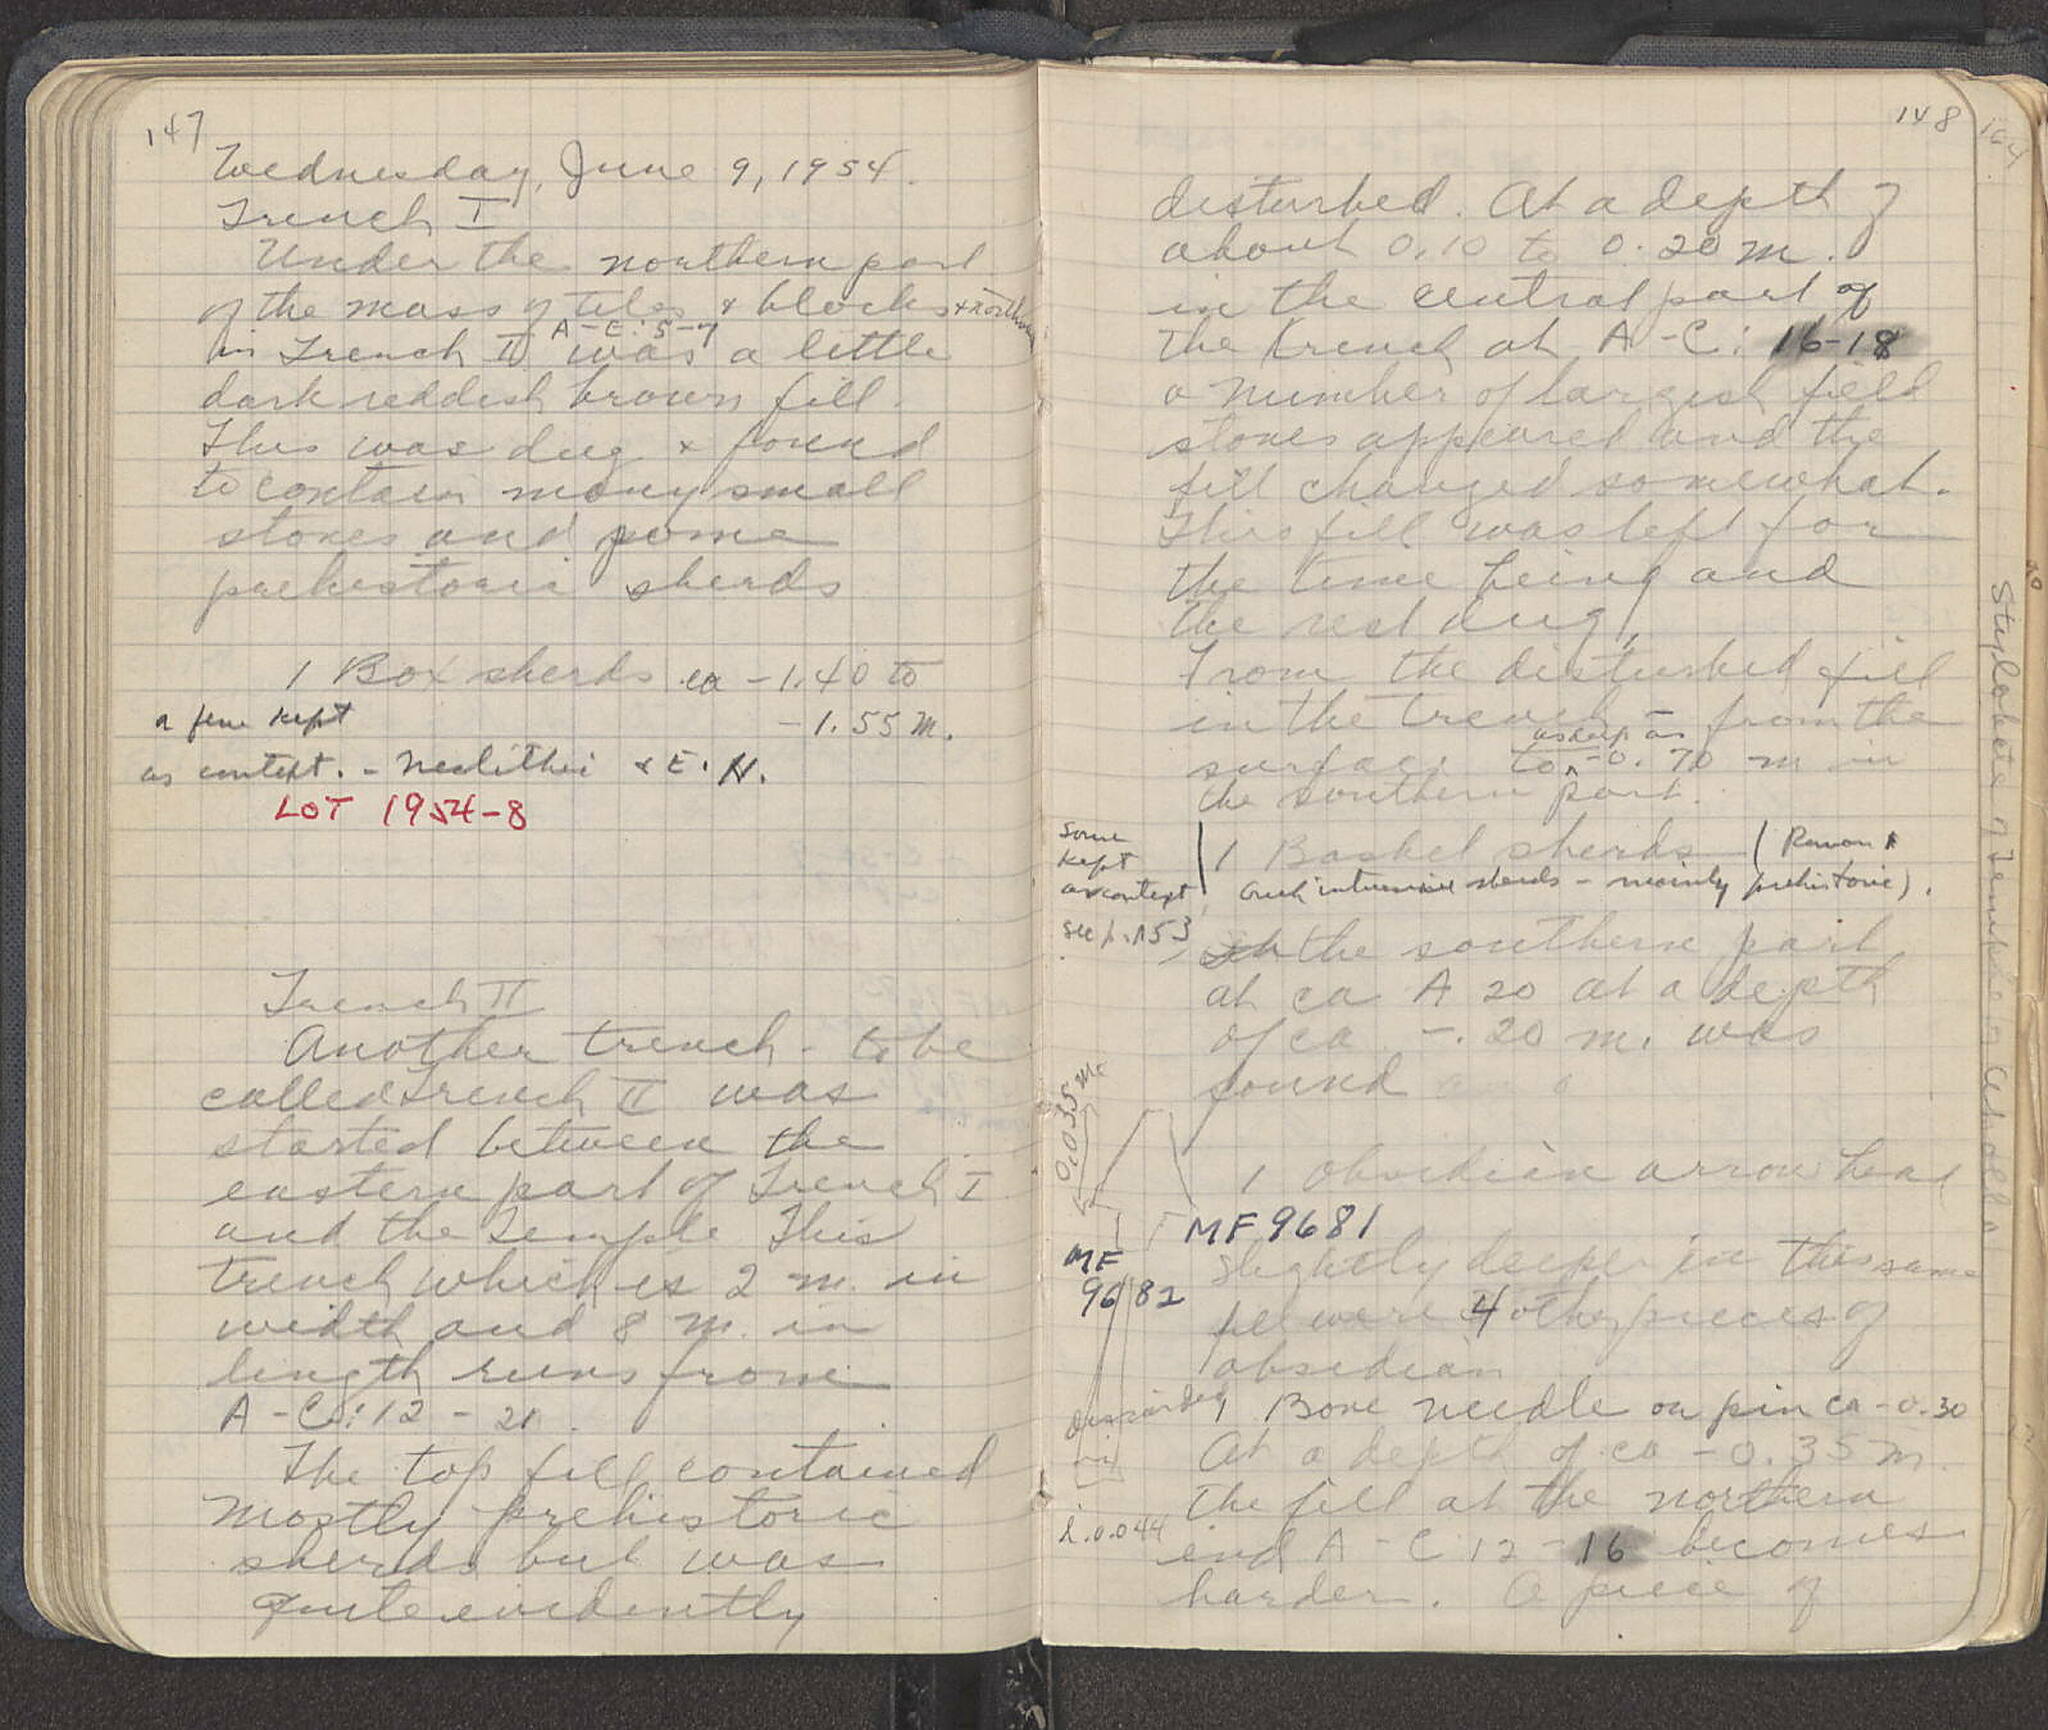 147
Wednesday, June 9, 1954.
Trench I
Under the northern part
of the mass of tiles & blocks
A-E: 5-7
in Trench II was a little
dark reddish brown fill.
This was dug & found
to contain many small
stones and some
prehistoric sherds
1 Box sherds ca -1.40 to
-1.55 m.
a few kept
as context. - Neolithic & E. H.
LOT 1954-8
Trench II
Another trench - to be
called Trench II was
started between the
eastern part of Trench I
and the Temple This
trench which is 2 m. in
width and 8 m. in
length runs from
A-C: 12-21.
The top fill contained
mostly prehistoric
sherds but was
quite evidently
148
disturbed. At a depth of
about 0.10 to 0.20 m.
in the central part of
the trench at A-C: 16-18
a number of largish field
stones appeared and the
fill changed somewhat.
This fill was left for
the time being and
the rest dug.
From the disturbed fill
in the trench - from the
surface to as deep as -0.70 m in
the southern part.
some
kept
as context
1 Basket sherds (Roman &
Greek intrusive sherds - mainly prehistoric).
see p. 153
In the southern part
at ca A 20 at a depth
of ca -.20 m. was
found
0.035 m
1 obsidian arrow head
MF 9681
MF
9682
slightly deeper in this same
fill were 4 other pieces of
obsidian
1 Bone needle or pin ca -0.30
At a depth of ca -0.35 m.
The fill at the northern
L. 0.044
end A-C 12-16 becomes
harder. A piece of
164
Stylobate of Temple of Apollo